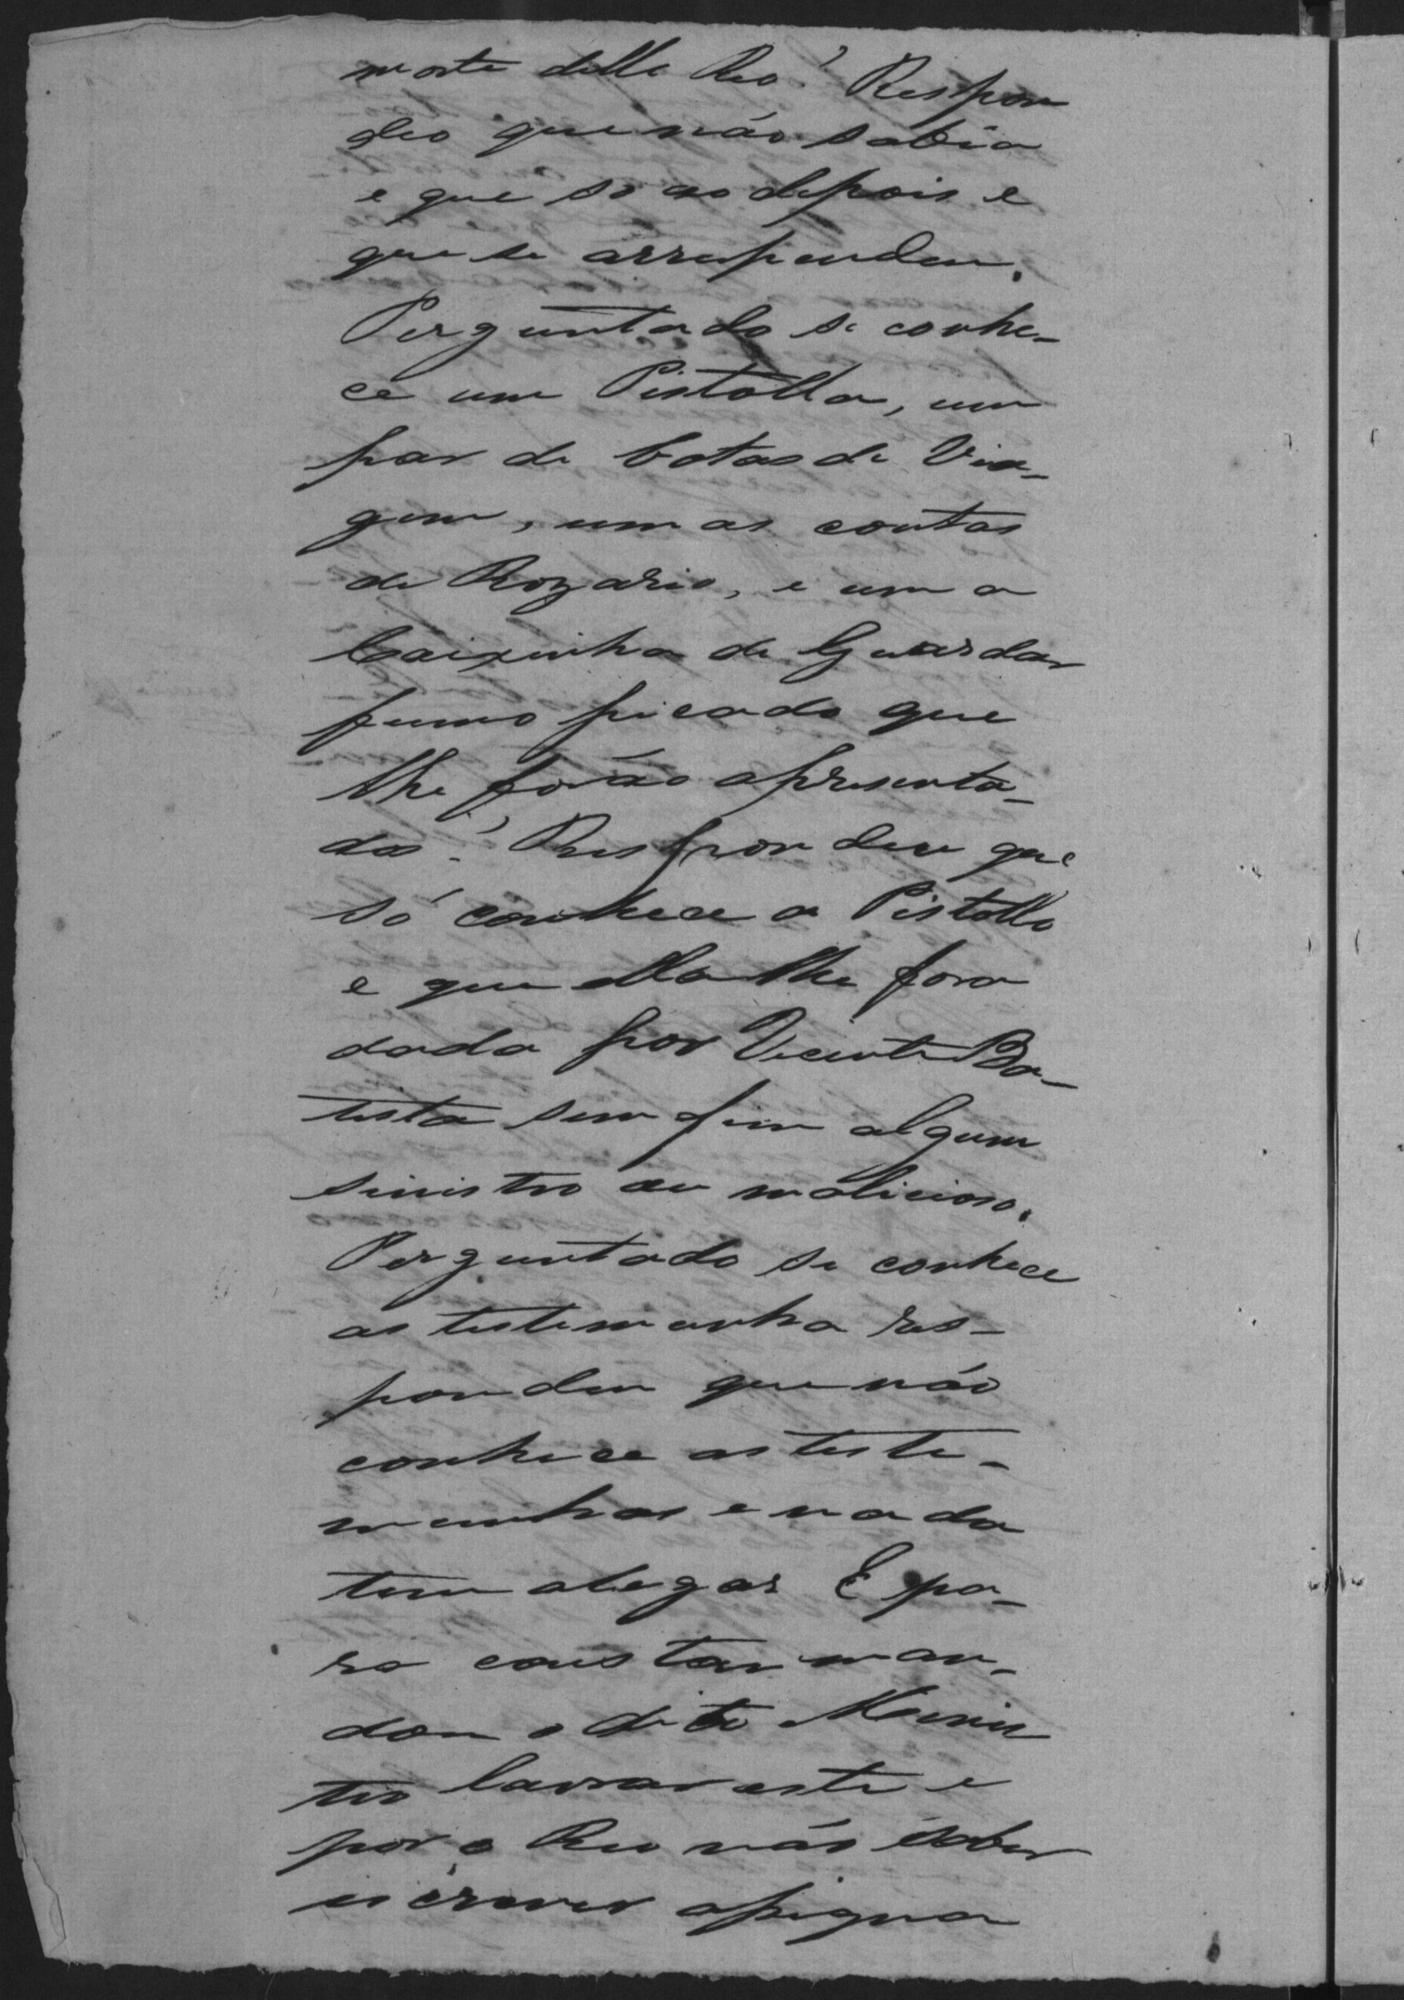 morte delle Reo? Respon
deo que não sabia
e que so ao depois e
que se arrependeu.
Perguntado se conhe-
ce uma Pistolla, um
par de botas de Via-
gem, umas contas
de Rozario, e uma
Caixinha de Guardar
fumo picado que
lhe forão apresenta-
das? Respondeu que
só conhece a Pistolla
e que ella lhe fora
dada por Vicente Ba-
tista sem fim algum
sinistro ou malicioso.
Perguntado se conhece
as testemunha res-
pondeu que não
conhece as teste-
munhas e nada
tem alegar E pa-
ra constar man-
dou o dito Menis
tro lavrar este e
por o Reo não saber
escrever assigna